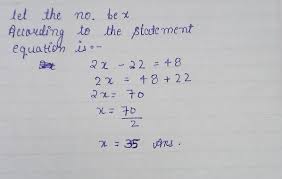 let the no. be x
According to the statement
equation is:-
2x - 22 = 48
2x = 48 + 22
2x = 70
x = 70
2
x = 35 Ans.